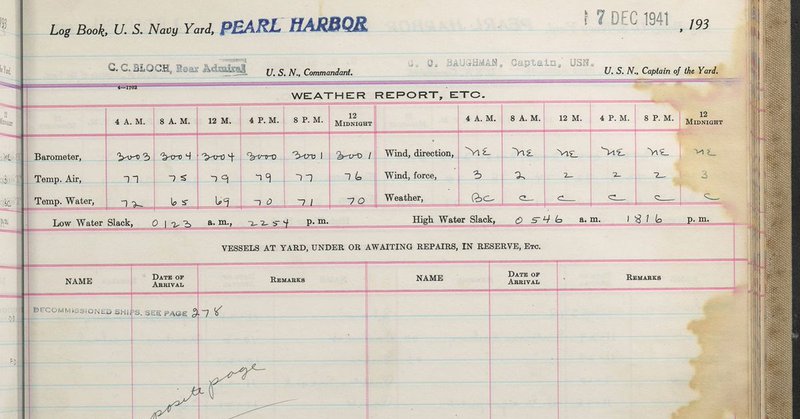 Log Book, U. S. Navy Yard, PEARL HARBOR 17 DEC 1941 , 193
C.C.BLOCH, Rear Admiral U. S. N., Commandant. C. O. BAUGHMAN, Captain, USN. U. S. N., Captain of the Yard.
4—1792
WEATHER REPORT, ETC.
4 A. M. 8 A. M. 12 M. 4 P. M. 8 P. M. 12 Midnight 4 A. M. 8 A. M. 12 M. 4 P. M. 8 P. M. 12 Midnight
Barometer, 3003 3004 3004 3000 3001 3001 Wind, direction, NE NE NE NE NE NE
Temp. Air, 77 75 79 79 77 76 Wind, force, 3 2 2 2 2 3
Temp. Water, 72 65 69 70 71 70 Weather, BC C C C C C
Low Water Slack, 0123 a. m., 2254 p. m. High Water Slack, 0546 a. m. 1816 p. m.
VESSELS AT YARD, UNDER OR AWAITING REPAIRS, IN RESERVE, Etc.
NAME Date of Arrival Remarks NAME Date of Arrival Remarks
DECOMMISSIONED SHIPS, SEE PAGE 278
posite page